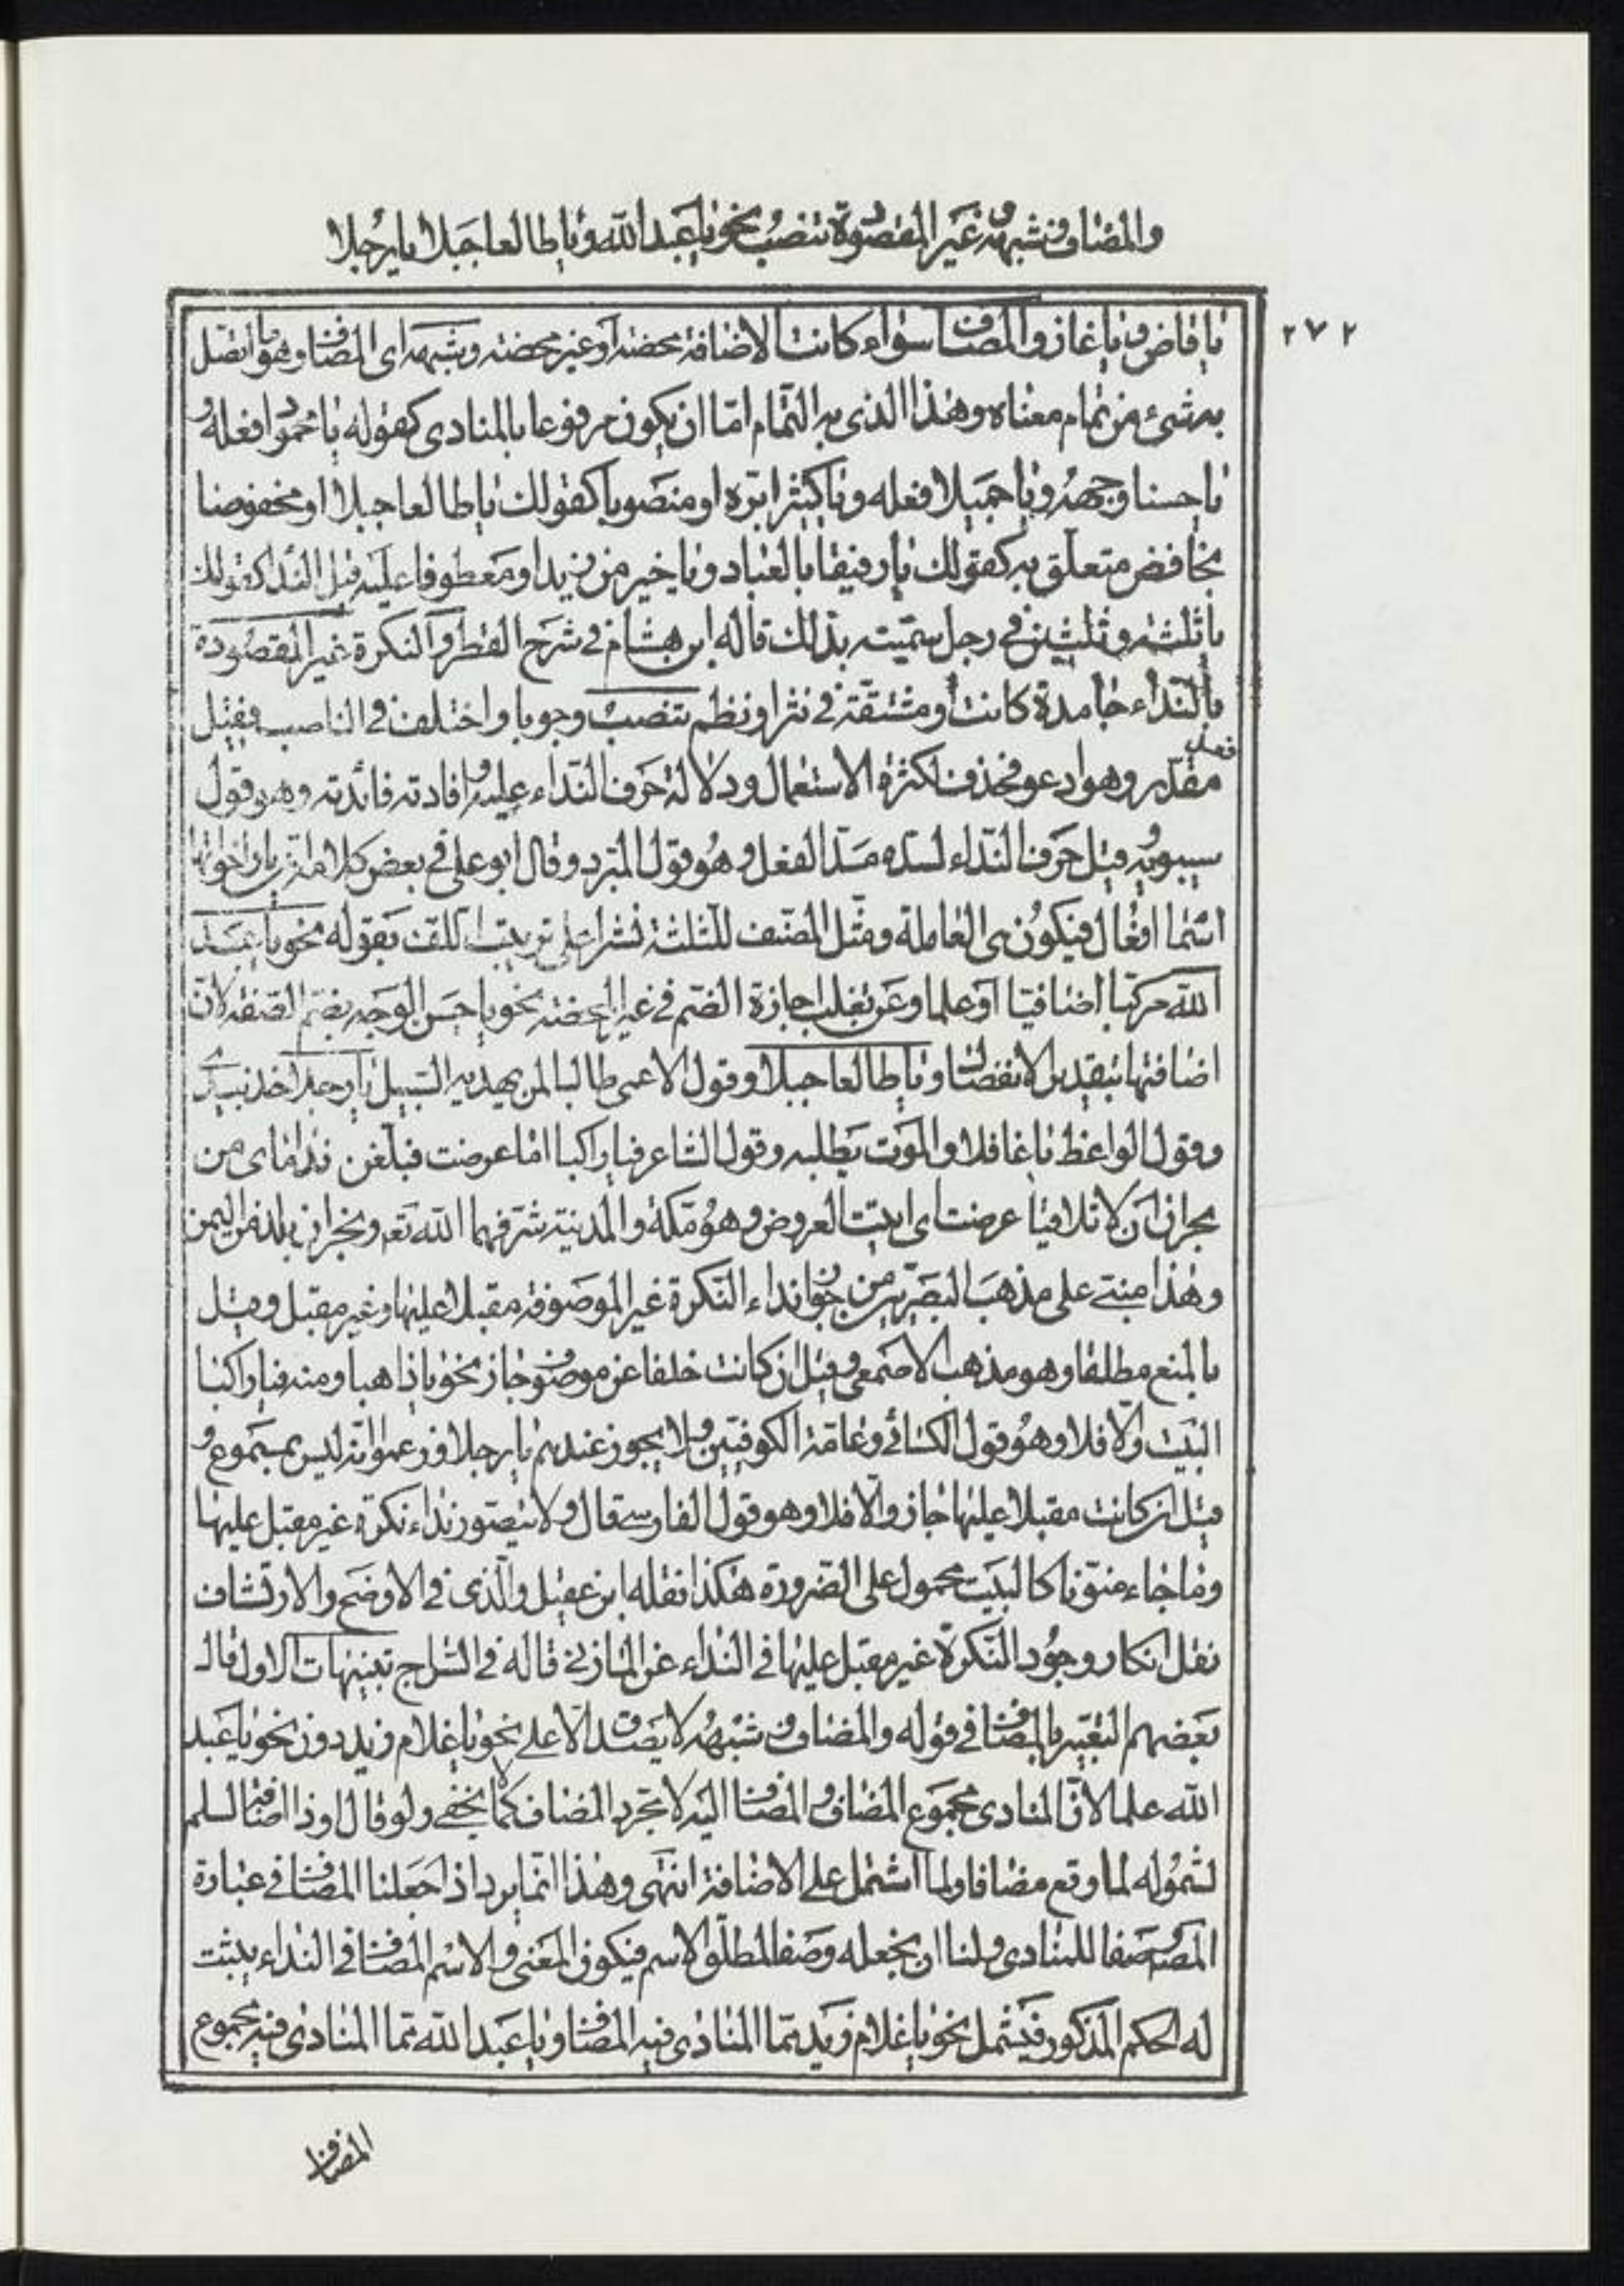 والمضاف وشبهه وغير المقصودة تنصب نحو يا عبد الله ويا طالعا جبلا يا رجلا
٢٧٢
يا قاض ويا غاز والمضاف سواء كانت الاضافة محضة او غير محضة وشبهه اى المضاف وهو ما اتصل
به شىء من تمام معناه وهذا الذى به التمام اما ان يكون مرفوعا بالمنادى كقوله يا محمودا فعله و
يا حسنا وجهه ويا جميلا فعله ويا كثيرا بره او منصوبا كقولك يا طالعا جبلا او مخفوضا
بخافض متعلق به كقولك يا رفيقا بالعباد ويا خير من زيد او معطوفا عليه قبل الندا كقولك
يا ثلثة وثلثين فى رجل سميته بذلك قاله ابن هشام فى شرح القطر والنكرة غير المقصودة
بالنداء جامدة كانت او مشتقة فى نثر او نظم تنصب وجوبا واختلف فى الناصب فقيل
فعل
مقدر وهو ادعو فحذف لكثرة الاستعمال ودلالة حرف النداء عليه وافادته فائدته وهو قول
سيبويه وقيل حرف النداء لسده مسد الفعل وهو قول المبرد وقال ابو على فى بعض كلامه ان يا واخواتها
اسما افعال فيكون هى العاملة ومثل المصنف للثلثة نشرا على ترتيب اللف بقوله نحو يا عبد
الله مركبا اضافيا او علما وعن ثعلب اجازة الضم فى غير المحضة نحو يا حسن الوجه بضم الصفة لان
اضافتها بتقدير الانفصال ويا طالعا جبلا وقول الاعمى طالبا لمن يهديه السبيل يا رجلا خذ بيدى
وقول الواعظ يا غافلا والموت يطلبه وقول الشاعر فيا راكبا اما عرضت فبلغن نداماى من
نجران ان لا تلاقيا عرضت اى اتيت العروض وهو مكة والمدينة شرفهما الله تعه ونجران بلد من اليمن
وهذا مبنى على مذهب البصريين من جواز نداء النكرة غير الموصوفة مقبلا عليها وغير مقبل وقيل
بالمنع مطلقا وهو مذهب الاصمعى وقيل ان كانت خلفا عن موصوف جاز نحو يا ذاهبا ومنه فيا راكبا
البيت والا فلا وهو قول الكسائى وعامة الكوفيين ولا يجوز عندهم يا رجلا وزعموا انه ليس بمسموع و
قيل ان كانت مقبلا عليها جاز والا فلا وهو قول الفارسى قال ولا يتصور نداء نكرة غير مقبل عليها
وما جاء منونا كالبيت محمول على الضرورة هكذا نقله ابن عقيل والذى فى الاوضح والارتشاف
نقل انكار وجود النكرة غير مقبل عليها فى النداء عن المازنى قاله فى السراج تنبيهات الاول قال
بعضهم التعبير بالمضاف فى قوله والمضاف وشبهه لا يصدق الا على نحو يا غلام زيد دون نحو يا عبد
الله علما لان المنادى مجموع المضاف والمضاف اليه لا مجرد المضاف كما لا يخفى ولو قال وذا اضافة لسلم
لشموله لما وقع مضافا ولما اشتمل على الاضافة انتهى وهذا انما يرد اذا جعلنا المضاف فى عبارة
المص وصفا للمنادى ولنا ان نجعله وصفا لمطلق الاسم فيكون المعنى والاسم المضاف فى النداء يثبت
له الحكم المذكور فيشمل نحو يا غلام زيد مما المنادى فيه المضاف ويا عبد الله مما المنادى فيه مجموع
المضاف